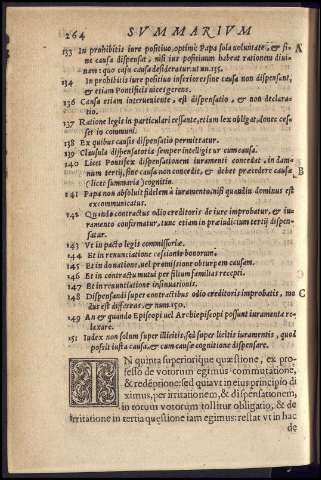 264 SVMMARIVM
133 In prohibitis iure positiuo, optimè Papa sola voluntate, & si-
ne causa dispensat, nisi ius positiuum habeat rationem diui-
nam: quo casu causa desideratur. ut nu. 135. A
134 In prohibitis iure positiuo inferiores sine causa non dispensant,
& etiam Pontificis vices gerens.
136 Causa etiam interueniente, est dispensatio, & non declara-
tio.
137 Ratione legis in particulari cessante, etiam lex obligat, donec ces-
set in communi.
138 Ex quibus causis dispensatio permittatur.
139 Clausula dispensatoria semper intelligitur cum causa.
140 Licet Pontifex dispensationem iuramenti concedat, in dam-
num tertij, sine causa non concedit, & debet præcedere causæ
(licet summaria) cognitio. B
141 Papa non absoluit fidelem à iuramento, nisi quandiu dominus est
excommunicatus.
142 Quando contractus odio creditoris de iure improbatur, & iu-
ramento confirmatur, tunc etiam in præiudicium tertij dispen-
satur.
143 Vt in pacto legis commissoriæ.
144 Et in renunciatione cessionis bonorum.
145 Et in donatione, vel promissione ob turpem causam.
146 Et in contractu mutui per filium familias recepti.
147 Et in renuntiatione insinuationis.
148 Dispensandi super contractibus odio creditoris improbatis, mo C
dus est differens, & num. 150.
149 An & quando Episcopi vel Archiepiscopi possunt iuramenta re-
laxare.
151 Iudex non solum super illicitis, sed super licitis iuramentis, quod
possit iusta causa, & cum causæ cognitione dispensare.
IN quinta superiorique quæstione, ex pro-
fesso de votorum egimus commutatione,
& redéptione: sed quia vt in eius principio di
ximus, per irritationem, & dispensationem,
in totum votorum tollitur obligatio, & de
irritatione in tertia quæstione iam egimus: restat vt in hac
de